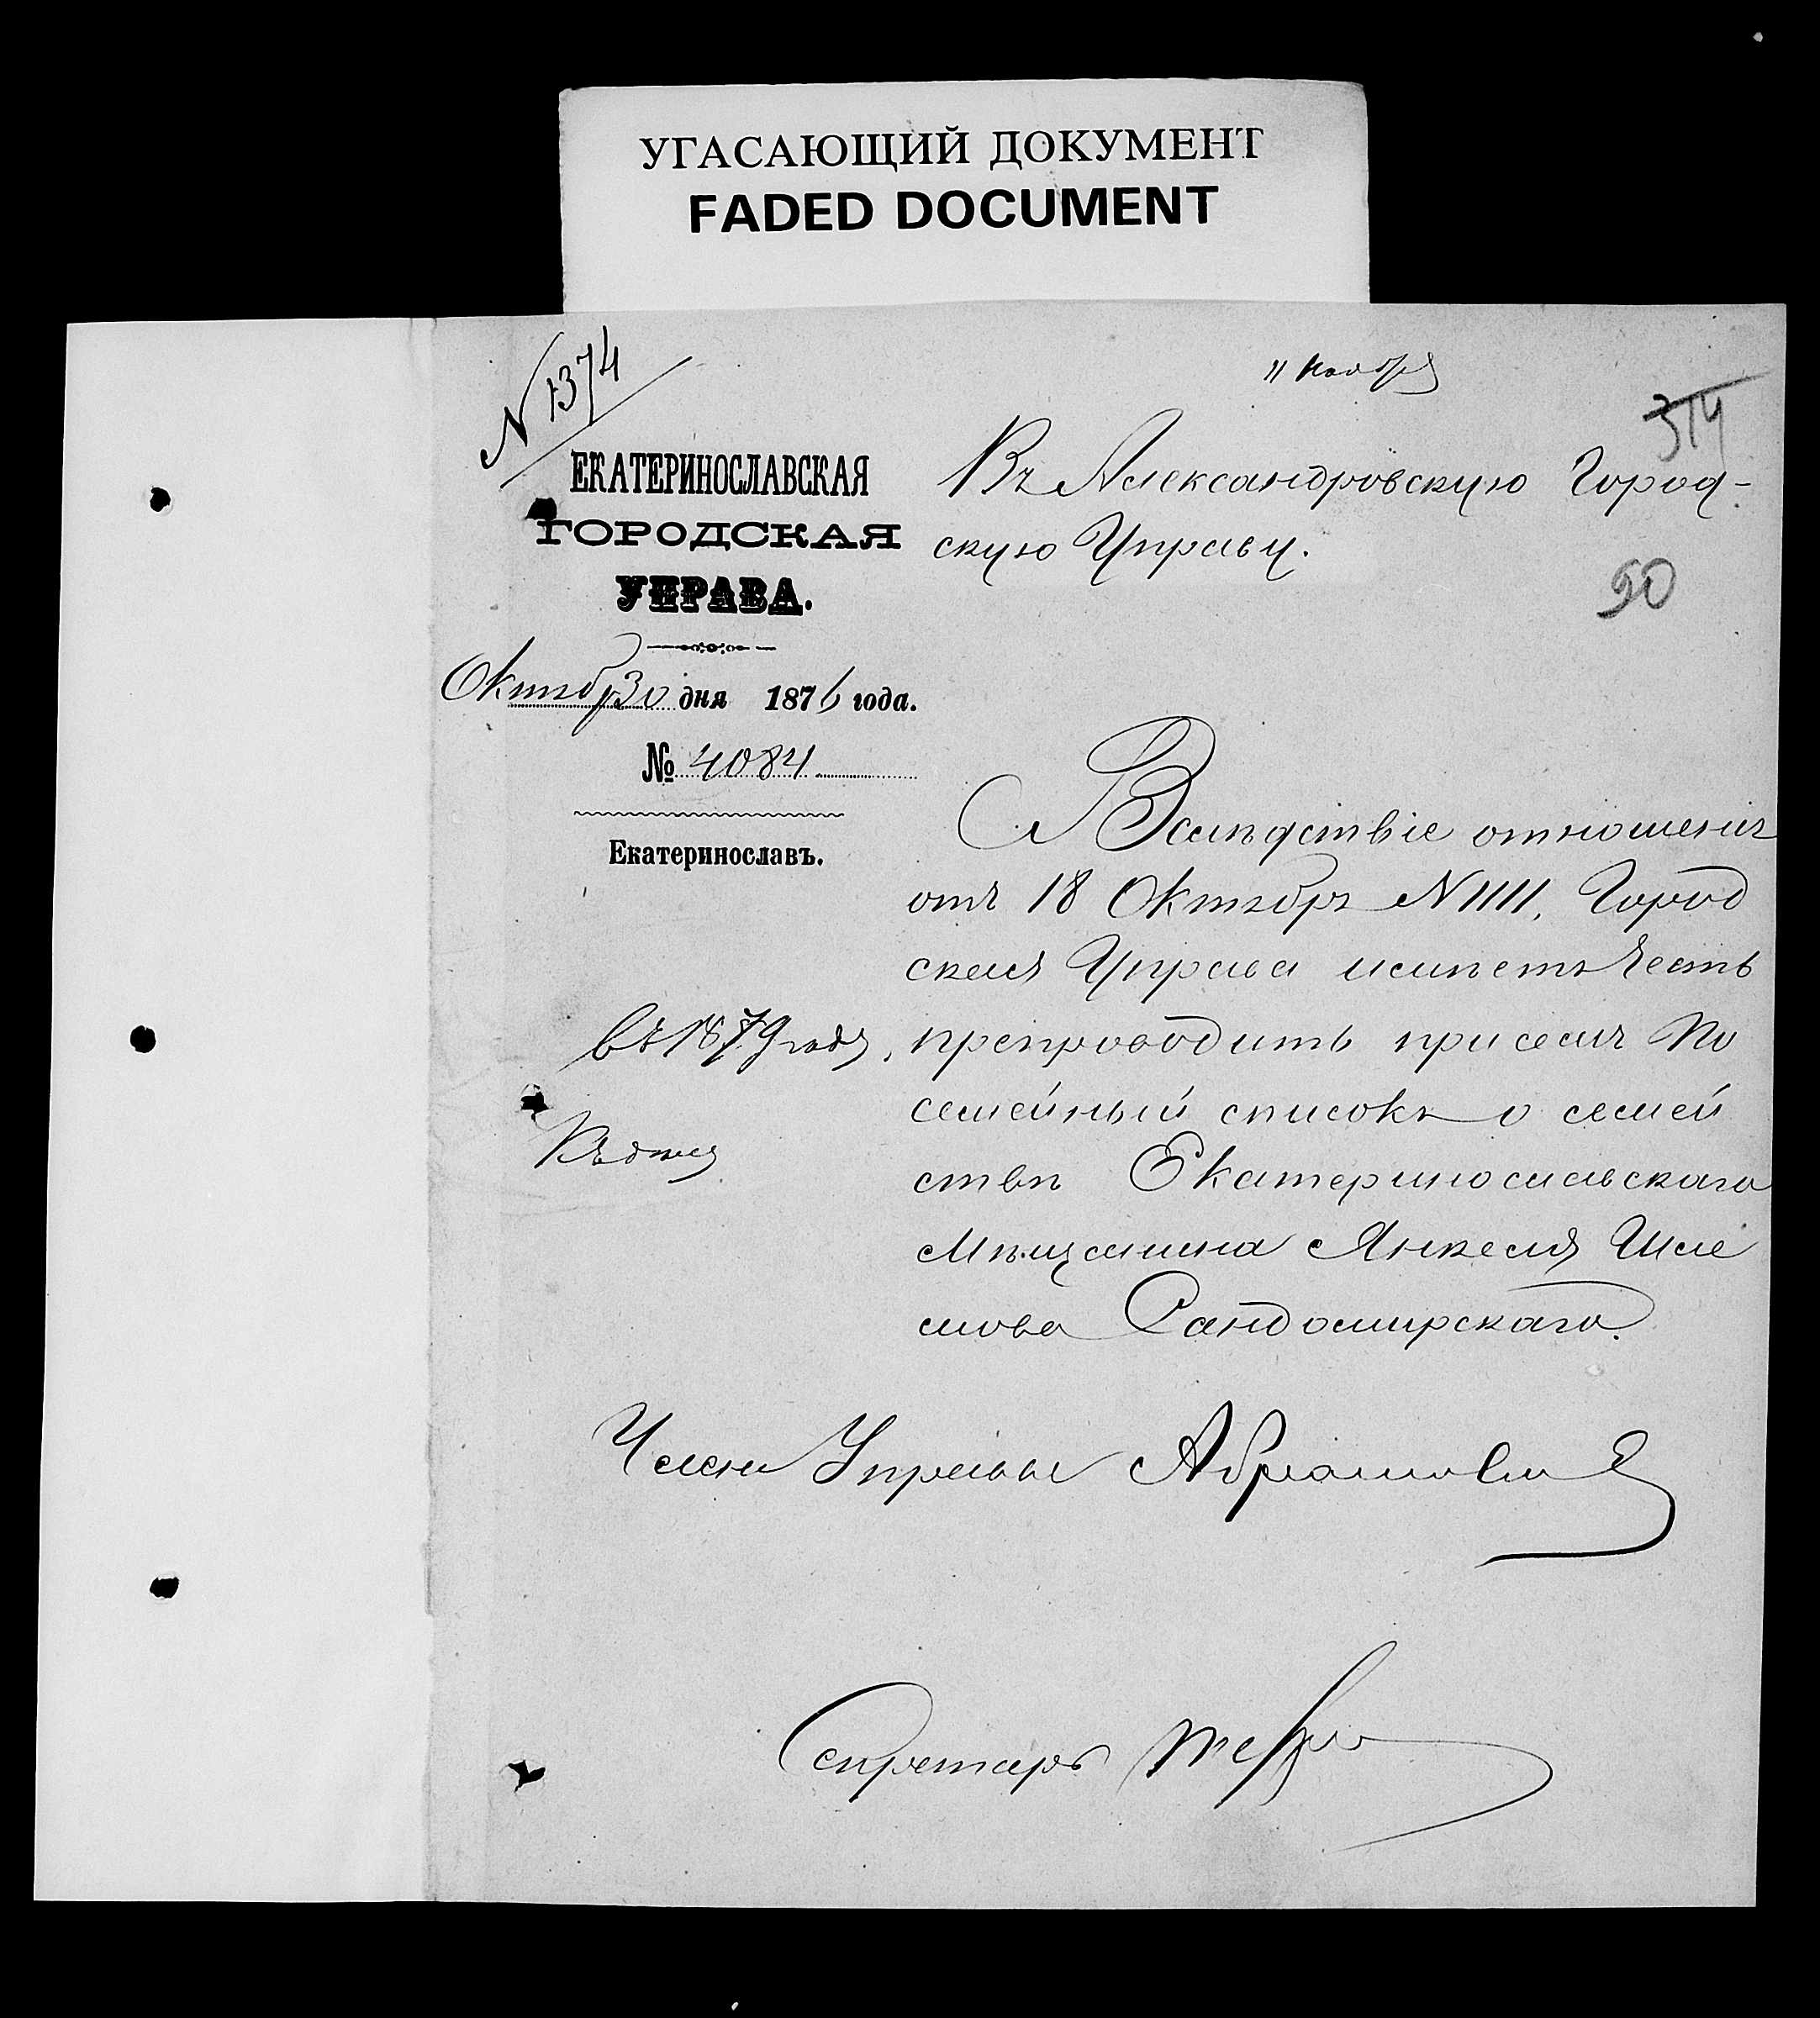 УГАСАЮЩИЙ ДОКУМЕНТ
FADED DOCUMENT
N 1374
11 Ноября
314
90
ЕКАТЕРИНОСЛАВСКАЯ
ГОРОДСКАЯ
УПРАВА.
Октябр 30 дня 1876 года.
№ 4084
Екатеринославъ.
Въ Александровскую Город-
скую Управу.
Вслѣдствіе отношенія
отъ 18 Октября N 1111, Город
ская Управа имѣетъ честь
препроводить при семъ По
семейный списокъ о семей
ствѣ Екатеринославскаго
Мѣщанина Янкеля Шле
мова Сандомирскаго.
въ 1879 году.
Къ дѣлу
Членъ Управы
Секретарь